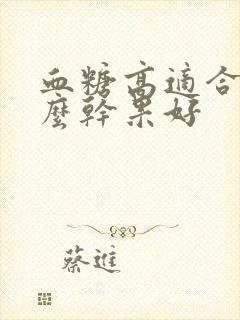 血糖高適合
麼幹果好
蔡進